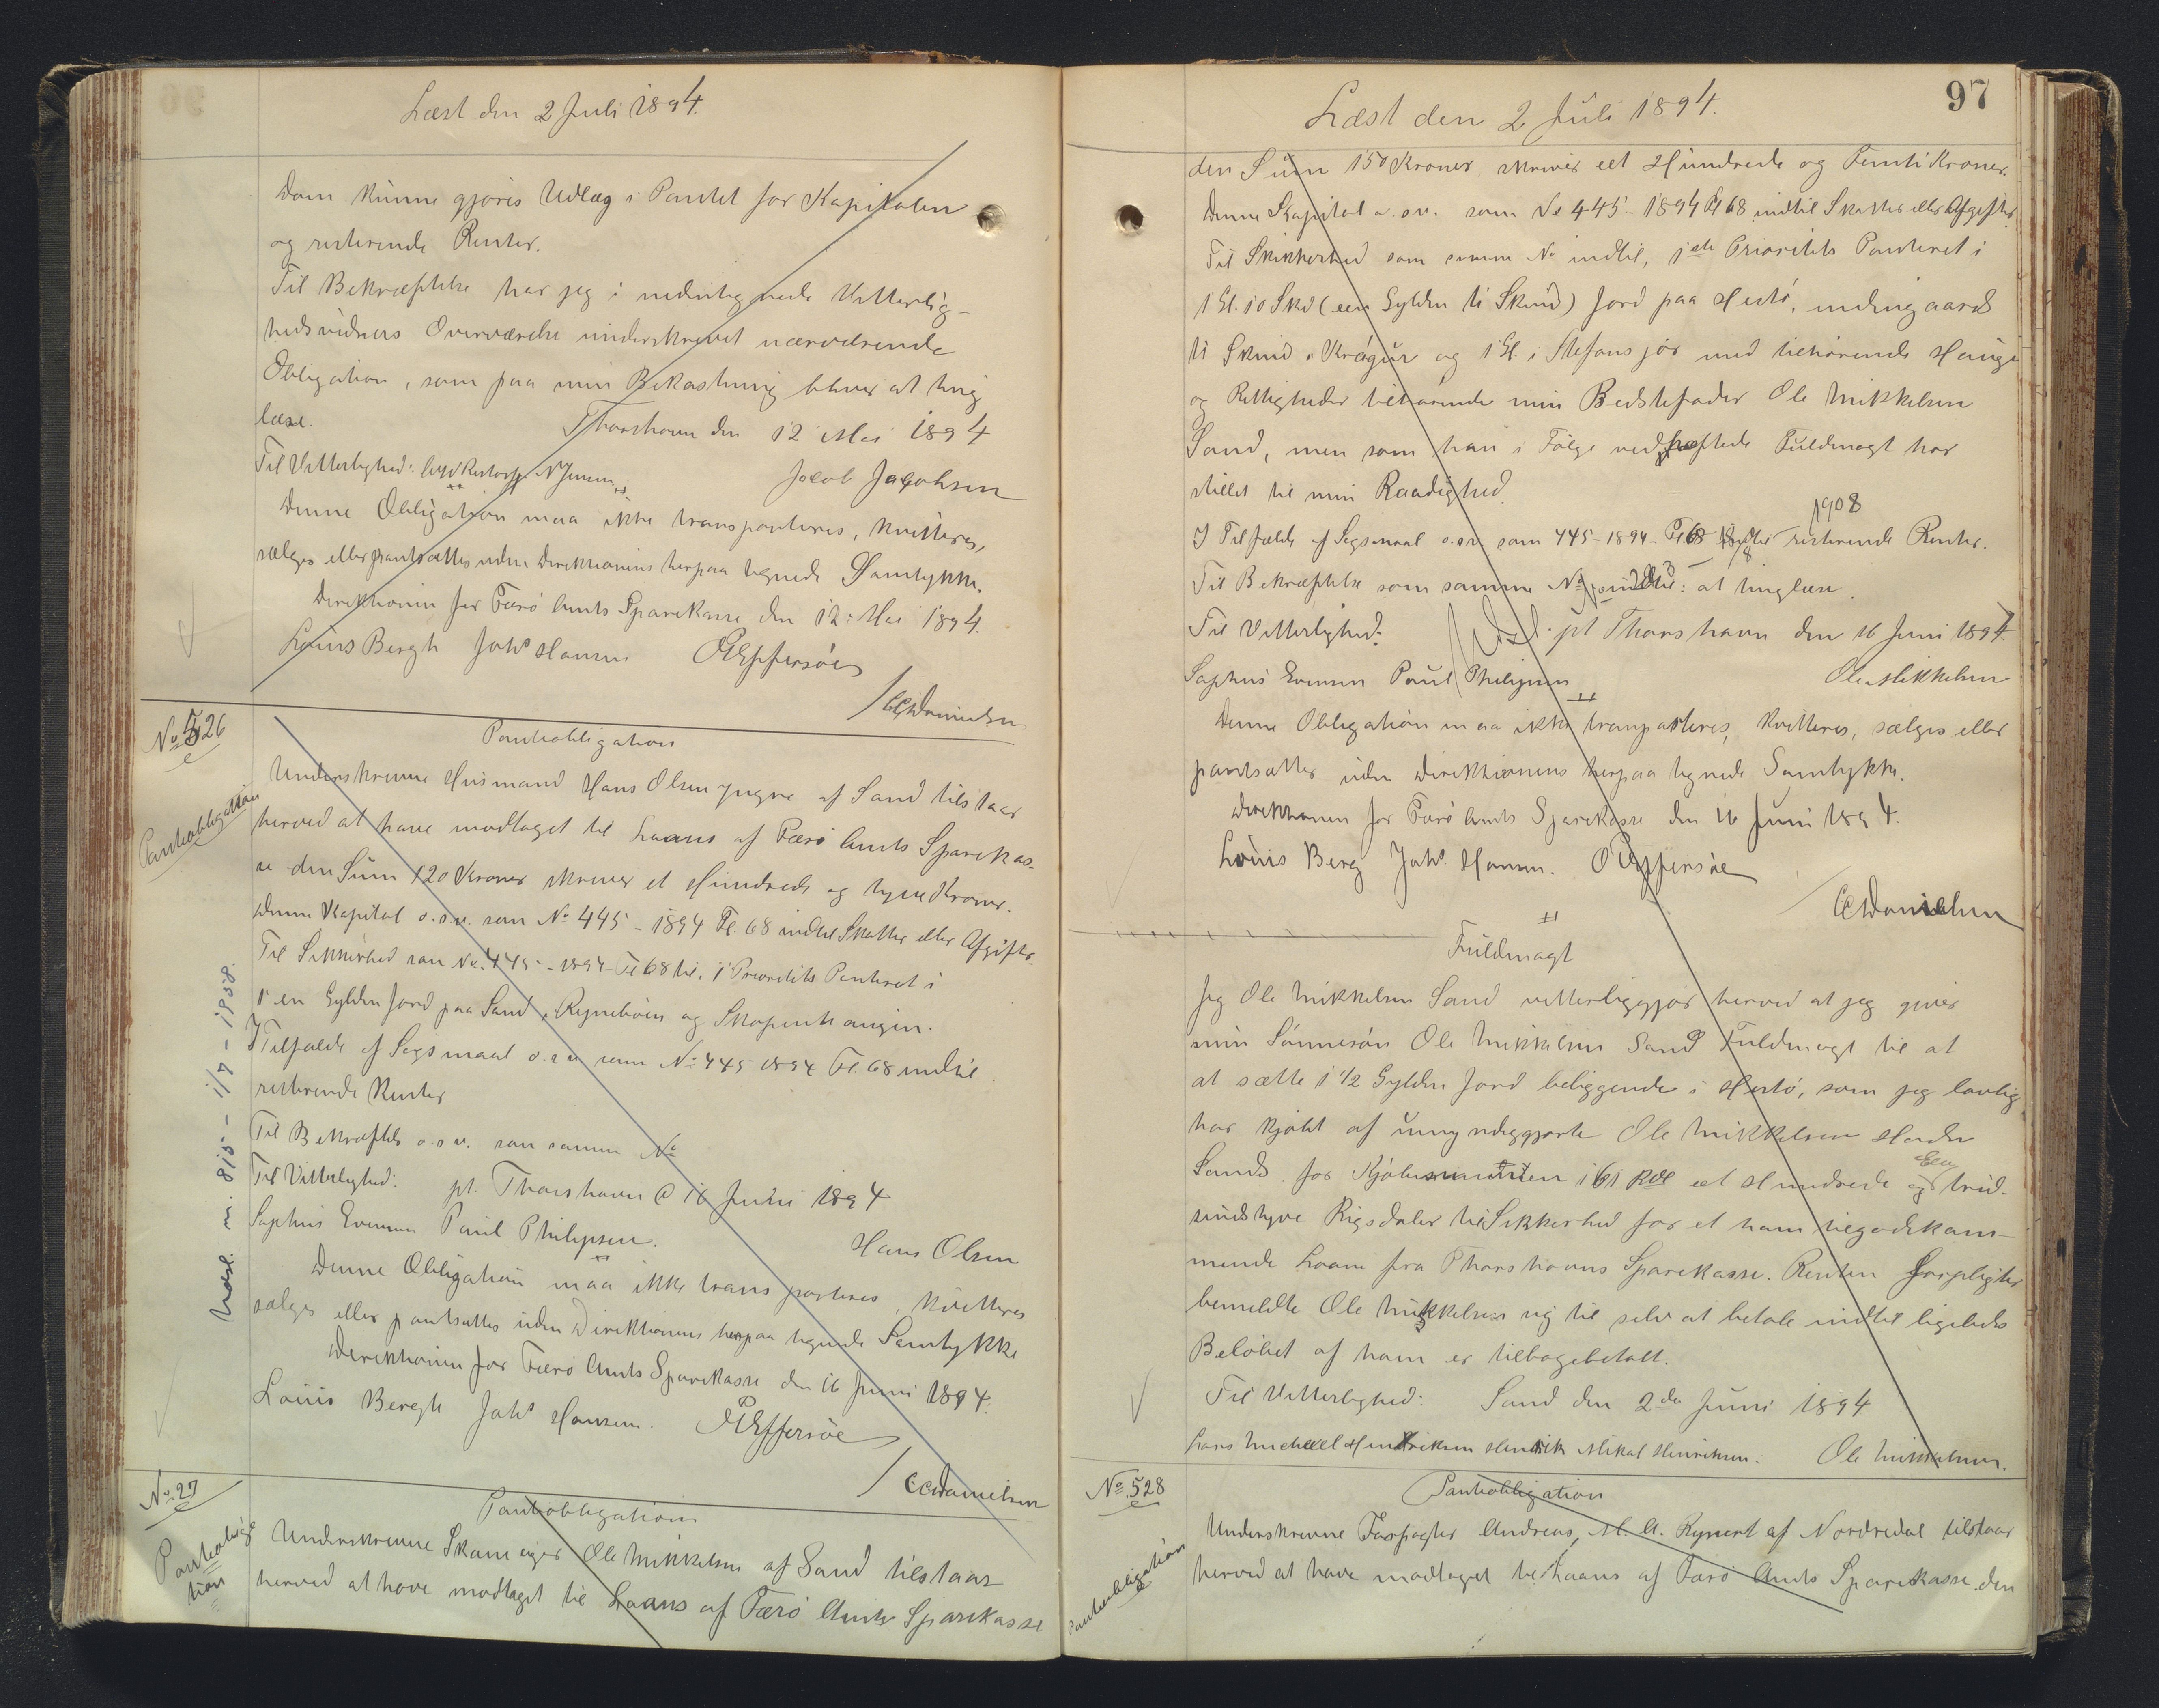 Læst den 2 Juli 1894.
Dom kunne gjøres Udlæg i Pantet for Kapitalen
og resterende Renter.
Til Bekræftelse har jeg i undertegnede Vitterlig-
hedsvidners Overværelse underskrevet nærværende
Obligation, som paa min Bekostning bliver at ting
læse. Thorshavn den 12 Mai 1894
Til Vitterlighed: N Jensen Jacob Jacobsen
Denne Obligation maa ikke transporteres, kvitteres,
sælges eller pantsættes uden Direktionens herpaa tegnede Samtykke.
Direktionen for Færø Amts Sparekasse den 12 Mai 1894.
Louis Bergh Johs Hansen P Effersøe
/ CC Danielsen
No 526
Pantobligation
Pantobligation
Underskrevne Husmand Hans Olsen yngre af Sand tilstaar
herved at have modtaget til Laans af Færø Amts Sparekas-
se den Sum 120 Kroner skriver et Hundrede og tyve Kroner.
Denne Kapital o.s.v. som No 445 - 1894 Fl. 68 indtil Skatter eller Afgifter.
Til Sikkerhed som No. 445 - 1894 Fl 68 til, 1 Prioritets Panteret i
1 en Gylden Jord paa Sand, Rynebøin og Skopenhaugin.
I Tilfælde af Søgsmaal o.s.v. som No 445 1894 Fl. 68 indtil
resterende Renter
Til Bekræftelse o.s.v. som samme No
Til Vitterlighed: pt. Thorshavn d 16 Juni 1894
Sophus Evensen Paul Philipsen. Hans Olsen
Denne Obligation maa ikke transporteres, kvitteres
sælges eller pantsættes uden Direktionens herpaa tegnede Samtykke
Direktionen for Færø Amts Sparekasse den 16 Juni 1894.
Louis Bergh Johs Hansen. P Effersøe
/ CC Danielsen
No. 27
Pantobliga
tion
Pantobligation
Underskrevne Ole Mikkelsen af Sand tilstaar
herved at have modtaget til Laans af Færø Amts Sparekasse
97
Læst den 2 Juli 1894.
den Sum 150 Kroner, skriver eet Hundrede og Femti Kroner.
Denne Kapital o.s.v. som No 445 - 1894 Fl 68 indtil Skatter eller Afgifter.
Til Sikkerhed som samme No indtil, 1ste Prioritets Panteret i
1 Gl. 10 Skd (een Gylden ti Skind) Jord paa Hestø, indengaards
ti Skind i Krágur og 1 Gl. i Stefansjør med tilhørende Hauge
og Rettigheder tilhørende min Bedstefader Ole Mikkelsen
Sand, men som han i Følge vedhæftede Fuldmagt har
stillet til min Raadighed.
1908
I Tilfælde af Søgsmaal o.s.v. som 445 - 1894 - Fl 68 indtil resterende Renter.
Til Bekræftelse som samme No indtil: at tinglæse.
Til Vitterlighed: pt Thorshavn den 16 Juni 1894
Sophus Evensen Paul Philipsen Ole Mikkelsen
Denne Obligation maa ikke transporteres, kvitteres, sælges eller
pantsættes uden Direktionens herpaa tegnede Samtykke.
Direktionen for Færø Amts Sparekasse den 16 Juni 1894.
Louis Berg Johs. Hansen. P Effersøe
/ CC Danielsen
Fuldmagt
Jeg Ole Mikkelsen Sand vitterliggjør herved at jeg giver
min Sønnesøn Ole Mikkelsen Sand Fuldmagt til at
at sætte 1 1/2 Gylden Jord beliggende i Hestø, som jeg lovlig
har kjøbt af umyndiggjorte Ole Mikkelsen
Sand for Kjøbesummen 161 Rdl eet Hundrede og Een tred-
sindstyve Rigsdaler til Sikkerhed for et ham tilgodekom-
mende Laan fra Thorshavns Sparekasse. Renten forpligter
bemeldte Ole Mikkelsen sig til selv at betale indtil ligeledes
Beløbet af ham er tilbagebetalt.
Til Vitterlighed: Sand den 2den Juni 1894
Lars Michael Hendriksen Hendrik Mikal Henriksen. Ole Mikkelsen.
No. 528
Pantobligation
Pantobligation
Underskrevne Forpagter Andreas M. A. Rynert af Nordredal tilstaar
herved at have modtaget til Laans af Færø Amts Sparekasse den